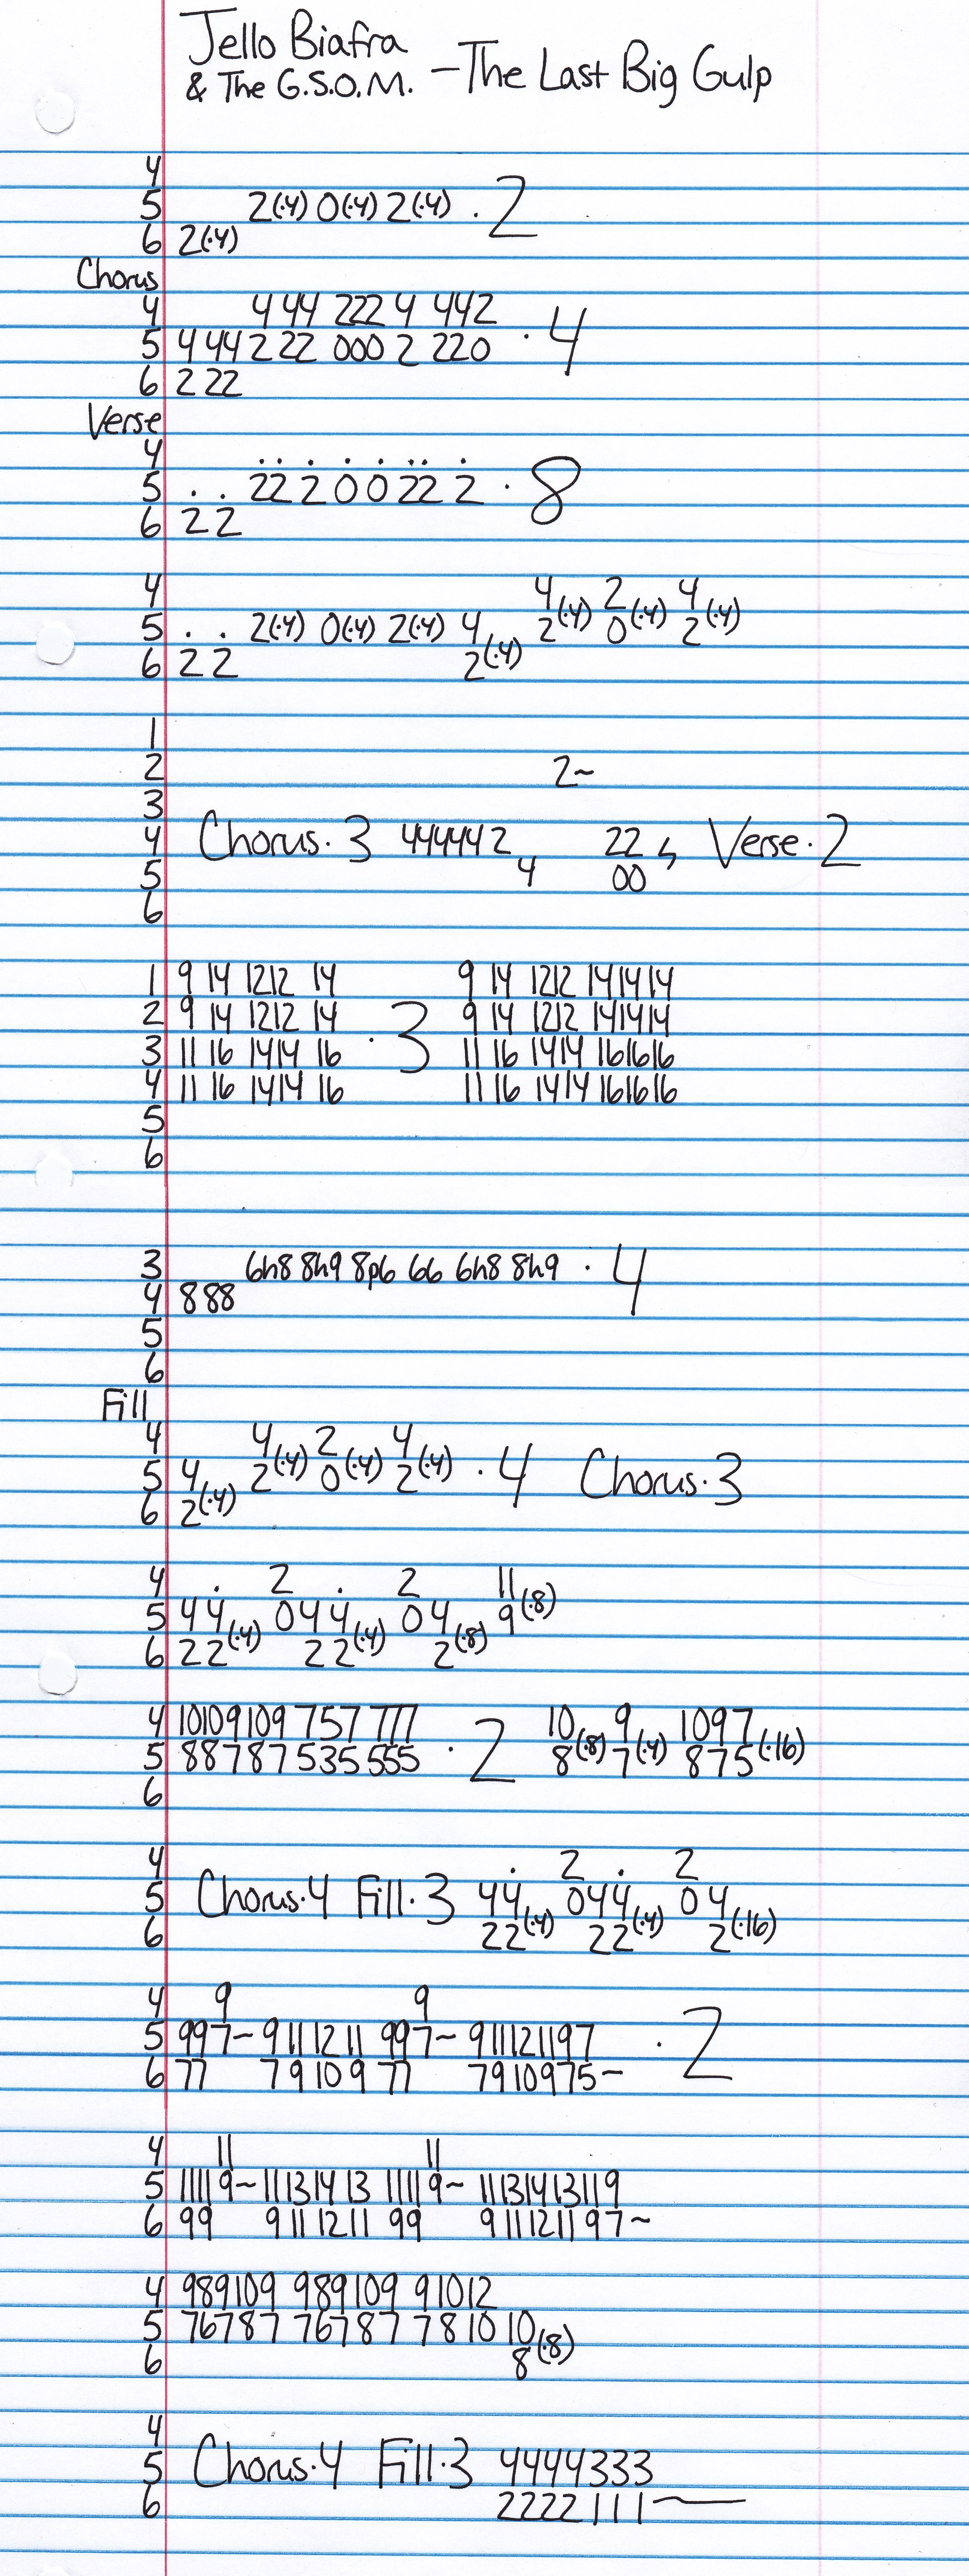 Jello Biafra
& The G.S.O.M. – The Last Big Gulp
4
5 2(·4) 0(·4) 2(·4) · 2
6 2(·4)
Chorus
4 4 44 222 4 442
5 4 44 2 22 000 2 220 · 4
6 2 22
Verse
4
5 . . 22 2 0 0 22 2 · 8
6 2 2
4 4(·4) 2(·4) 4(·4)
5 . . 2(·4) 0(·4) 2(·4) 4 2 0 2
6 2 2 2(·4)
1
2 2~
3
4 Chorus·3 444442 22 Verse·2
5 4 00
6
1 9 14 1212 14 9 14 1212 141414
2 9 14 1212 14 9 14 1212 141414
3 11 16 1414 16 · 3 11 16 1414 161616
4 11 16 1414 16 11 16 1414 161616
5
6
3 6h8 8h9 8p6 66 6h8 8h9 · 4
4 888
5
6
Fill
4 4(·4) 2(·4) 4(·4)
5 4 2 0 2 · 4 Chorus·3
6 2(·4)
4 . 2 . 2 11(·8)
5 4 4 0 4 4 0 4 9
6 2 2(·4) 2 2(·4) 2(·8)
4 10109109 757 777 10 9 1097
5 88787535555 · 2 8(·8) 7(·4) 875(·16)
6
4 . 2 . 2
5 Chorus·4 Fill·3 44 044 0 4
6 22(·4) 22(·4) 2(·16)
4 9 9
5 997~ 9 11 12 11 997~ 911121197 · 2
6 77 7 9 10 9 77 7910975~
4 11 11
5 11119~ 11131413 11119~ 11131413119
6 99 9 11 1211 99 911121197~
4 989109 989109 91012
5 76787 76787 7810 10
6 8(·8)
4
5 Chorus·4 Fill·3 4444333
6 2222111~